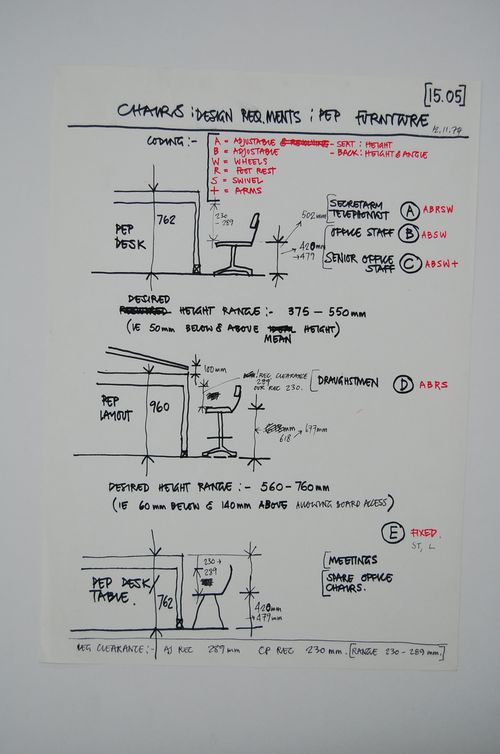 [15.05]
CHAIRS : DESIGN REQ.MENTS : PEP FURNITURE
12.11.79
CODING :- A = ADJUSTABLE - SEAT : HEIGHT
B = ADJUSTABLE - BACK : HEIGHT & ANGLE
W = WHEELS
R = FOOT REST
S = SWIVEL
+ = ARMS
762
PEP
DESK
230
-289
502mm
420mm
→479
SECRETARY
TELEPHONIST A ABRSW
OFFICE STAFF B ABSW
SENIOR OFFICE
STAFF C ABSW+
DESIRED
HEIGHT RANGE :- 375 - 550mm
(IE 50mm BELOW & ABOVE HEIGHT)
MEAN
100mm
PEP
LAYOUT
960
REC CLEARANCE
289
OUR REC 230.
DRAUGHTSMEN D ABRS
mm 697mm
618
DESIRED HEIGHT RANGE :- 560-760mm
(IE 60mm BELOW & 140mm ABOVE ALLOWING BOARD ACCESS)
E FIXED.
ST, L
PEP DESK/
TABLE.
762
230→
289
420mm
→479mm
MEETINGS
SPARE OFFICE
CHAIRS.
LEG CLEARANCE :- AJ REC 289mm CP REC 230mm. [RANGE 230-289mm.]